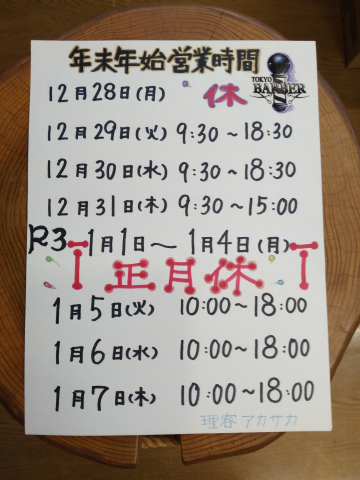 年末年始営業時間
TOKYO
BARBER
12月28日(月) 休
12月29日(火) 9:30~18:30
12月30日(水) 9:30~18:30
12月31日(木) 9:30~15:00
R3 1月1日~1月4日(月)
正月休
1月5日(火) 10:00~18:00
1月6日(水) 10:00~18:00
1月7日(木) 10:00~18:00
理容アカサカ